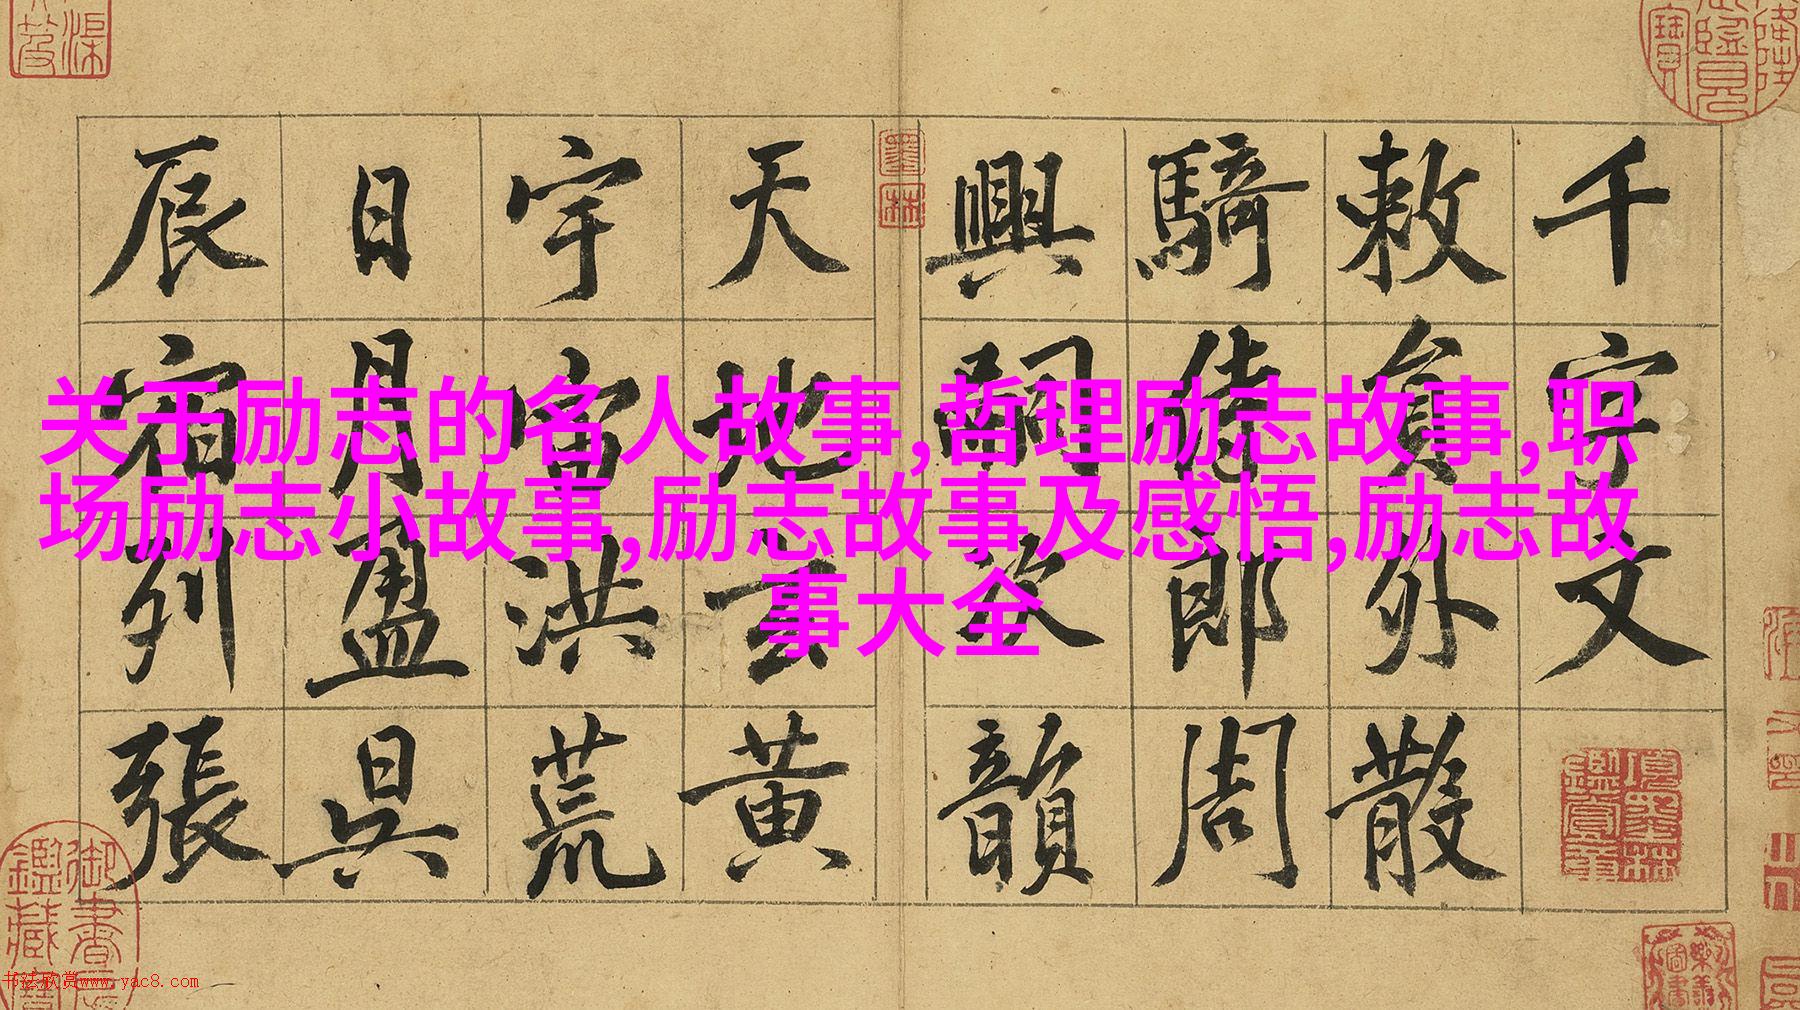 关于励志的名人故事,哲理励志故事,职
场励志小故事,励志故事及感悟,励志故
事大全
千字文
敕員外散
騎侍郎周
興嗣次韻
天地玄黃
宇宙洪荒
日月盈昃
辰宿列張
墨林
項墨林鑑賞章
书法欣赏www.yac8.com